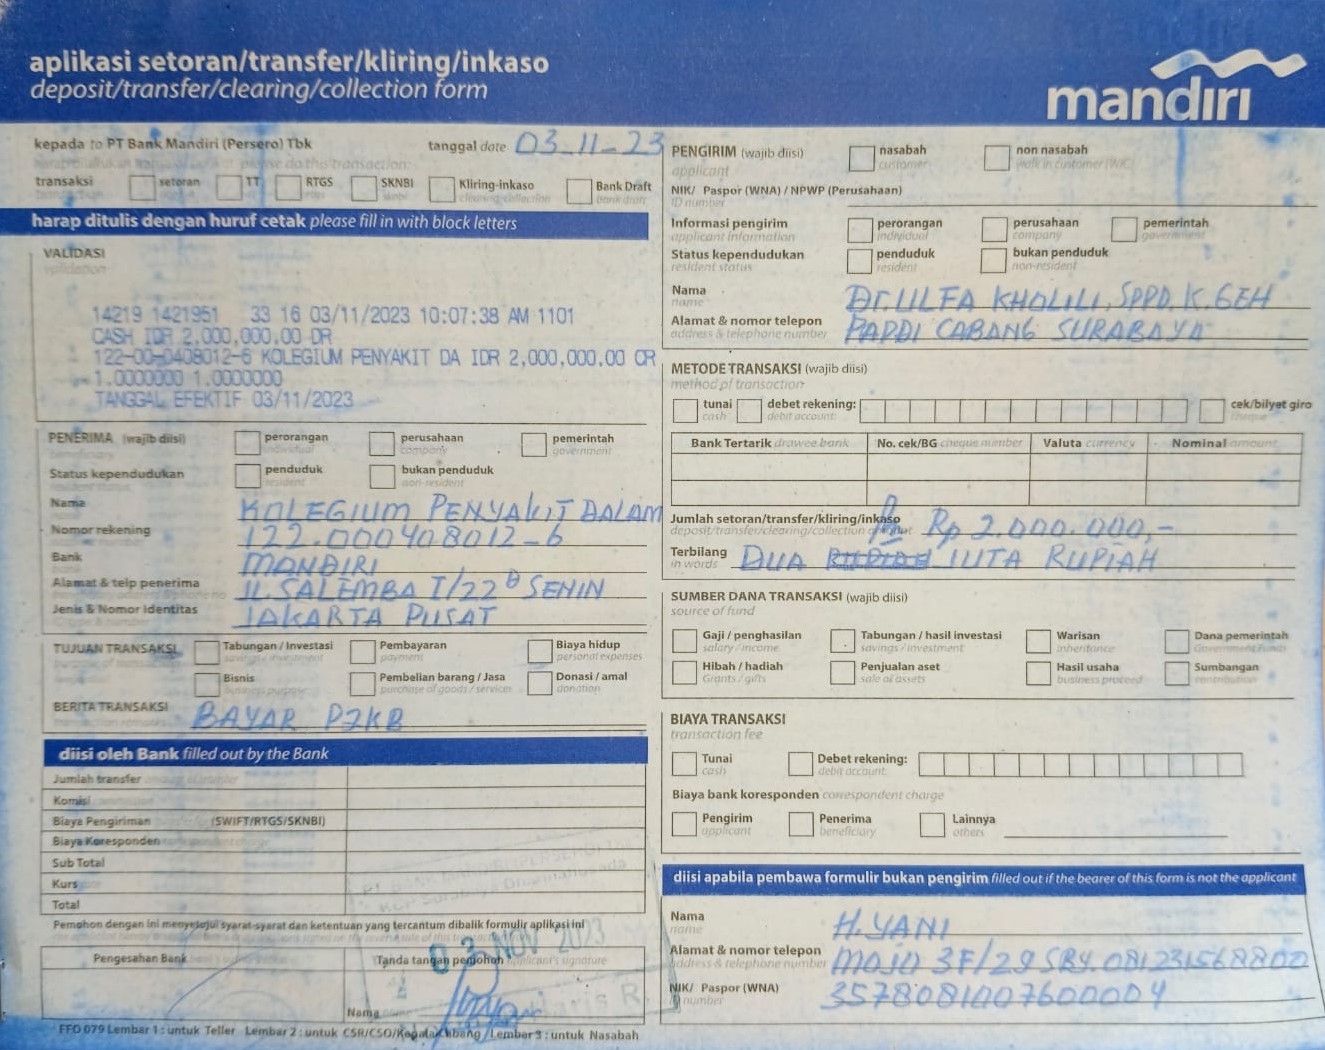 aplikasi setoran/transfer/kliring/inkaso
deposit/transfer/clearing/collection form
mandiri
kepada to PT Bank Mandiri (Persero) Tbk
tanggal date 03-11-23
please do this transaction:
transaksi setoran TT RTGS SKNBI Kliring-inkaso Bank Draft
harap ditulis dengan huruf cetak please fill in with block letters
VALIDASI
validation
14219 1421951 33 16 03/11/2023 10:07:38 AM 1101
CASH IDR 2,000,000.00 DR
122-00-0408012-6 KOLEGIUM PENYAKIT DA IDR 2,000,000.00 CR
1.0000000 1.0000000
TANGGAL EFEKTIF 03/11/2023
PENERIMA (wajib diisi) perorangan perusahaan pemerintah
beneficiary individual company government
Status kependudukan penduduk bukan penduduk
resident non-resident
Nama KOLEGIUM PENYAKIT DALAM
Nomor rekening 122.000408012-6
Bank MANDIRI
Alamat & telp penerima JL. SALEMBA I/22 D SENIN
Jenis & Nomor Identitas JAKARTA PUSAT
TUJUAN TRANSAKSI Tabungan / Investasi Pembayaran Biaya hidup
savings / investment payment personal expenses
Bisnis Pembelian barang / Jasa Donasi / amal
business purpose purchase of goods / services donation
BERITA TRANSAKSI BAYAR P2KB
diisi oleh Bank filled out by the Bank
Jumlah transfer
Komisi
Biaya Pengiriman (SWIFT/RTGS/SKNBI)
Biaya Koresponden
Sub Total
Kurs
Total
Pemohon dengan ini menyetujui syarat-syarat dan ketentuan yang tercantum dibalik formulir aplikasi ini
Pengesahan Bank
Tanda tangan pemohon applicant's signature
03 NOV 2023
Nama
FFO 079 Lembar 1 : untuk Teller Lembar 2 : untuk CSR/CSO/Kepala Cabang Lembar 3 : untuk Nasabah
PENGIRIM (wajib diisi) nasabah non nasabah
applicant customer walk in customer (WIC)
NIK/ Paspor (WNA) / NPWP (Perusahaan)
ID number
Informasi pengirim perorangan perusahaan pemerintah
applicant information individual company government
Status kependudukan penduduk bukan penduduk
resident status resident non-resident
Nama Dr. ULFA KHOLILI, SPPD. K. GEH
name
Alamat & nomor telepon PAPDI CABANG SURABAYA
address & telephone number
METODE TRANSAKSI (wajib diisi)
method of transaction
tunai debet rekening: cek/bilyet giro
cash debit account: cheque
Bank Tertarik drawee bank No. cek/BG cheque number Valuta currency Nominal amount
Jumlah setoran/transfer/kliring/inkaso Rp 2.000.000,-
deposit/transfer/clearing/collection amount
Terbilang DUA JUTA RUPIAH
in words
SUMBER DANA TRANSAKSI (wajib diisi)
source of fund
Gaji / penghasilan Tabungan / hasil investasi Warisan Dana pemerintah
salary / income savings / investment inheritance Government Funds
Hibah / hadiah Penjualan aset Hasil usaha Sumbangan
Grants / gifts sale of assets business proceed
BIAYA TRANSAKSI
transaction fee
Tunai Debet rekening:
cash debit account:
Biaya bank koresponden correspondent charge
Pengirim Penerima Lainnya
applicant beneficiary others
diisi apabila pembawa formulir bukan pengirim filled out if the bearer of this form is not the applicant
Nama H. YANI
name
Alamat & nomor telepon MOJO 3F/29 SBY. 081231568800
address & telephone number
NIK/ Paspor (WNA) 3578081007600004
ID number